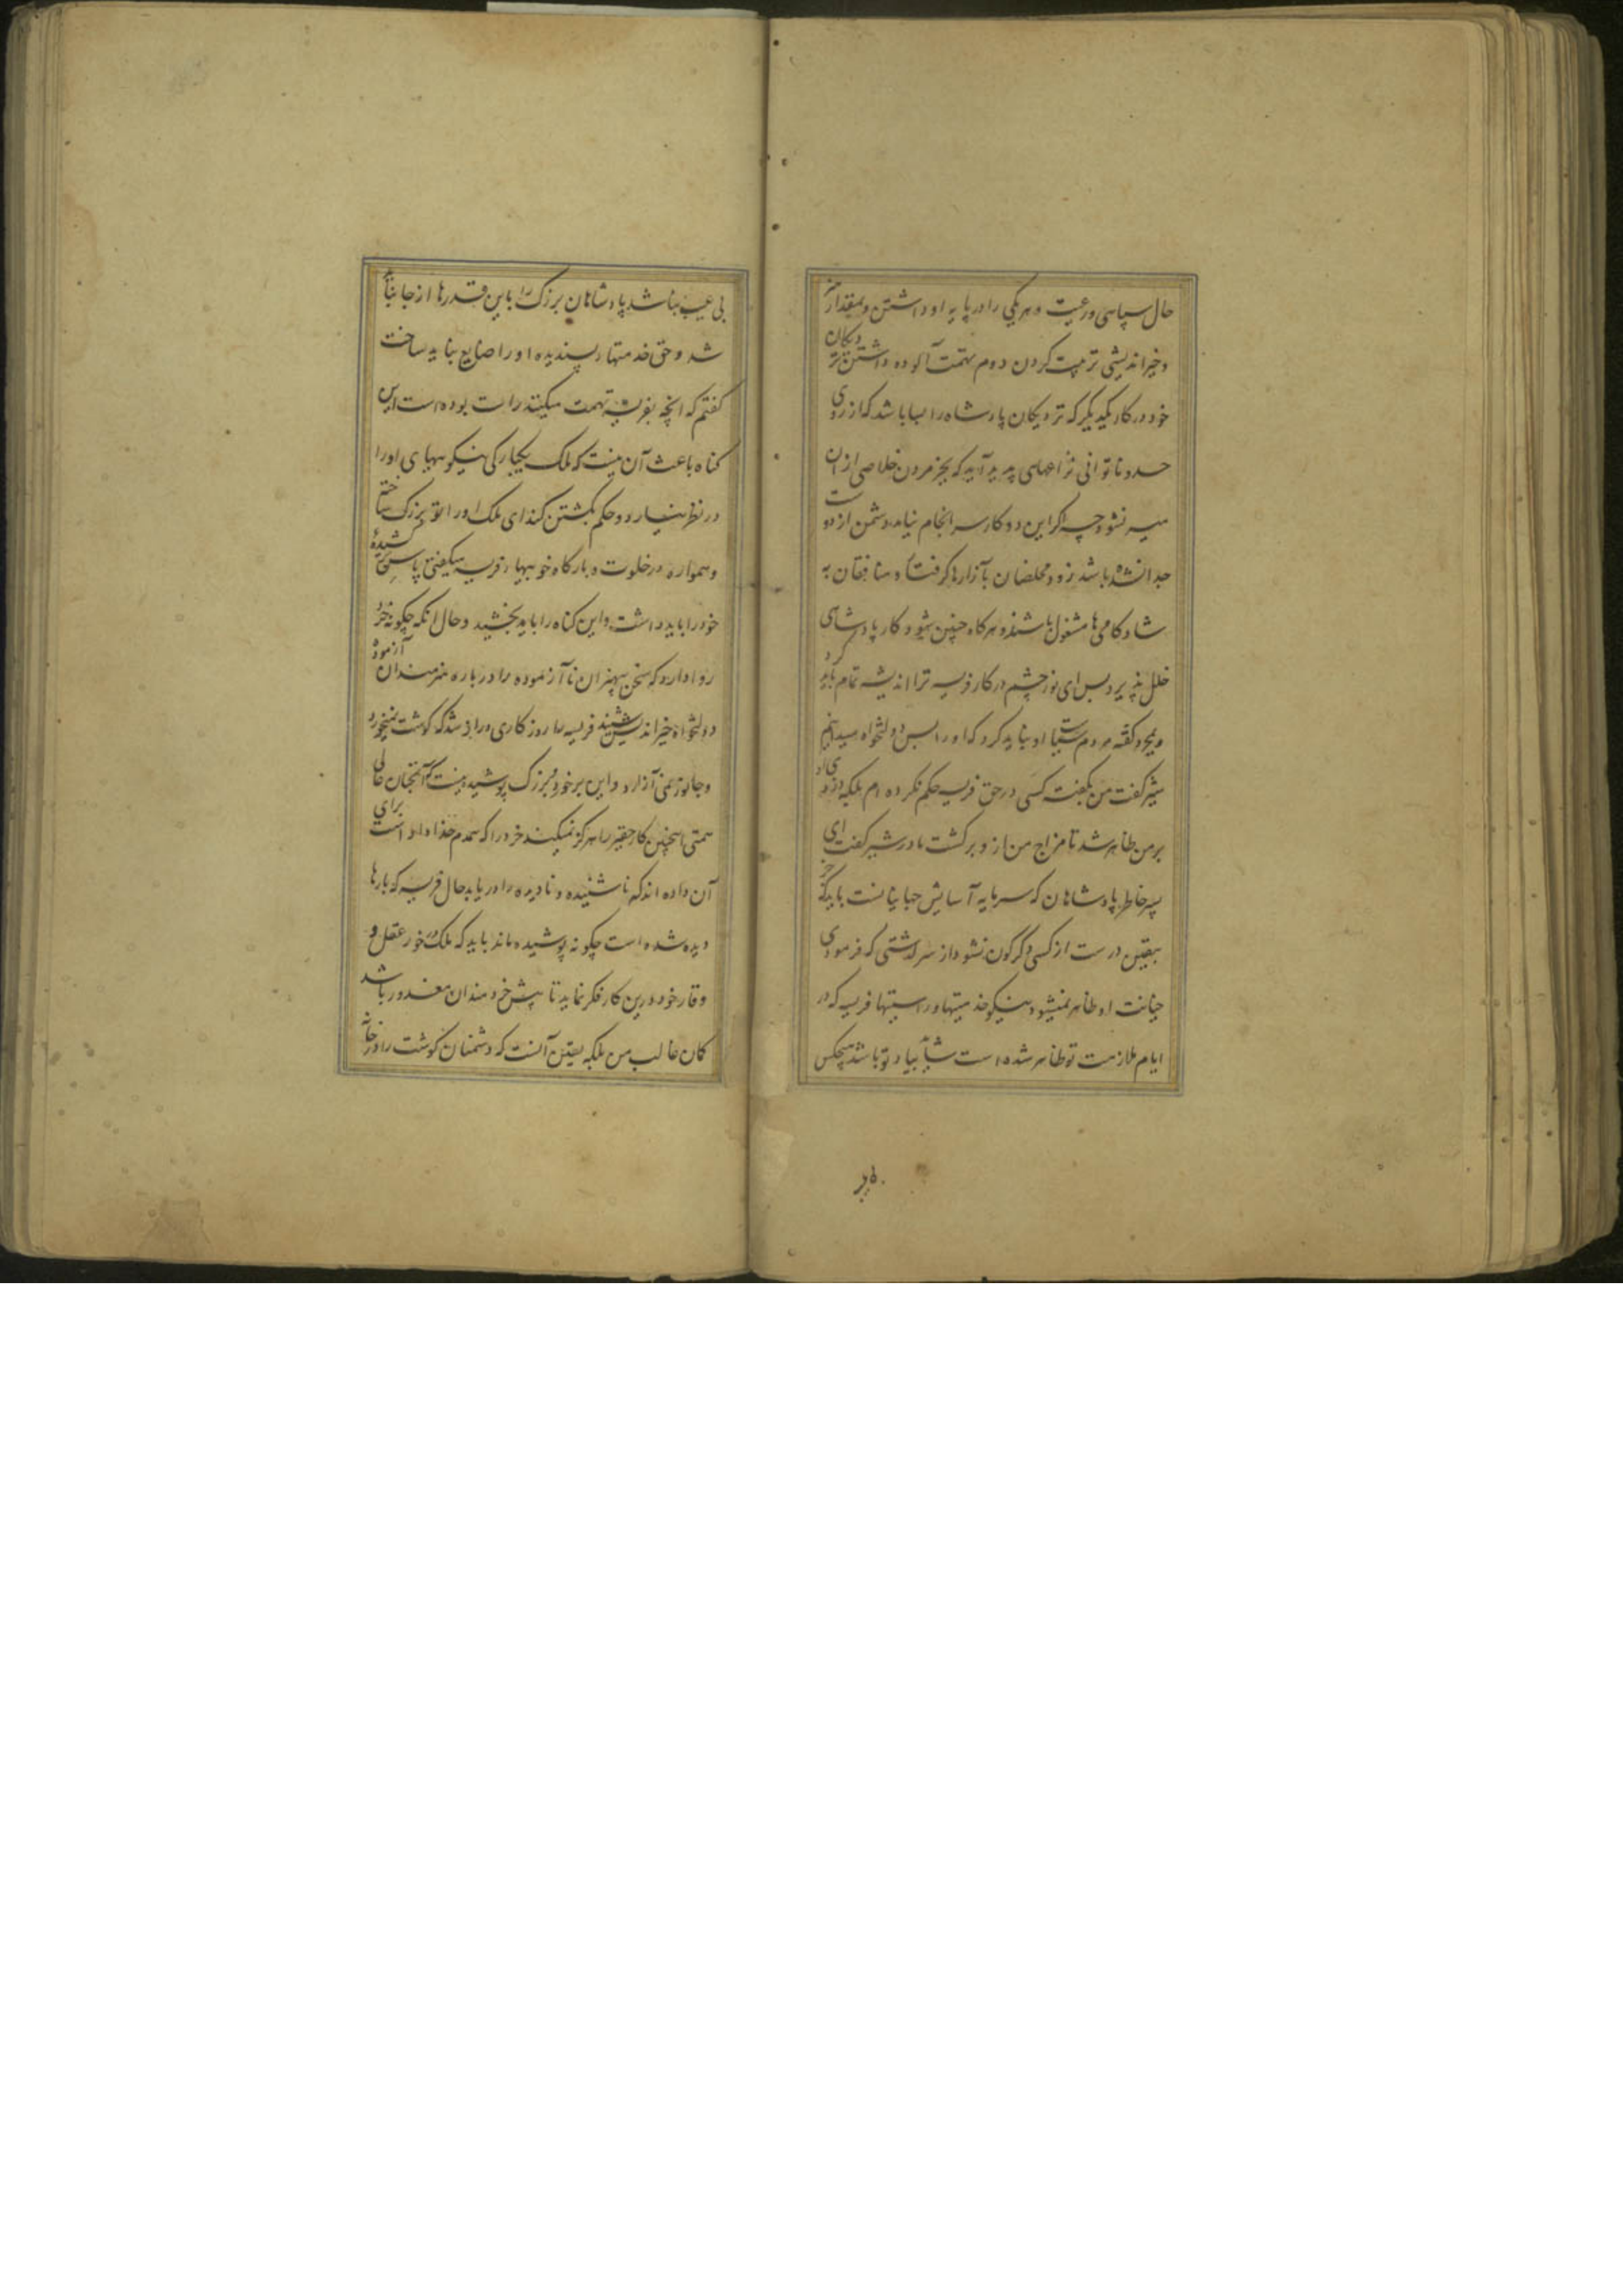 حال سپاهی و رعیت و هر یکی را در پایه او داشتن و بمقدار هنر
و خیراندیشی تربیت کردن دوم بتهمت آلوده داشتن نزدیکان
خود در کار یکدیگر که نزدیکان پادشاه را بسا باشد که از روی
حسد و ناتوانی نزاعهای پدید آید که بجز مردن خلاصی ازان
میسر نشود چه اگر این دو کار سرانجام نیابد دشمن از دوست
جدا نشده باشد زود مخلصان بآزارها گرفتار و منافقان به
شادکامی‌ها مشغول باشند و هرگاه چنین شود کار پادشاهی
خلل پذیرد پس ای نور چشم در کار فریسه ترا اندیشه تمام باید کرد
و بمجرد گفته مردم سیاست او نباید کرد که او را بس دولتخواه میدانیم
شیر گفت من بگفت کسی در حق فریسه حکم نکرده ام بلکه دزدی او
بر من ظاهر شد تا مزاج من ازو برگشت مادر شیر گفت ای
پسر خاطر پادشاهان که سرمایه آسایش جهانیانست باید که جز
بیقین درست از کسی دگرگون نشود از سرگذشتی که فرمودی
خیانت او ظاهر نمیشود و نیکو خدمتیها و راستیها فریسه که در
ایام ملازمت تو ظاهر شده است شاید بیاد تو باشد هیچکس
بی عیب نباشد پادشاهان بزرگ را باین قدرها از جا نباید
شد و حق خدمتهای پسندیده او را ضایع نباید ساخت
گفتم که انچه بفریسه تهمت میکنند راست بوده است این
گناه باعث آن نیست که ملک یکبارگی نیکوییهای او را
در نظر نیارد و حکم بکشتن کند ای ملک او را تو بزرگ ساختی
و همواره در خلوت و بارگاه خوبیهای فریسه میگفتی پاس سخن
خود را باید داشت و این گناه را باید بخشید و حال انکه چگونه خرد
روا دارد که سخن بیهنران ناآزموده را درباره هنرمندان آزموده
دولتخواه خیراندیش شنیدن فریسه را روزگاری دراز شد که گوشت نمیخورد
و جانور نمی آزارد و این بر خرد و بزرگ پوشیده نیست که آنچنان عالی
همتی اینچنین کار حقیر را هرگز نمیکند خرد را که همدم خداداد است برای
آن داده اند که ناشنیده و نادیده را دریابد حال فریسه که بارها
دیده شده است چگونه پوشیده ماند باید که ملک در خور عقل و
وقار خود درین کار فکر نماید تا پیش خردمندان معذور باشد
گمان غالب من بلکه یقین آنست که دشمنان گوشت را در خانه